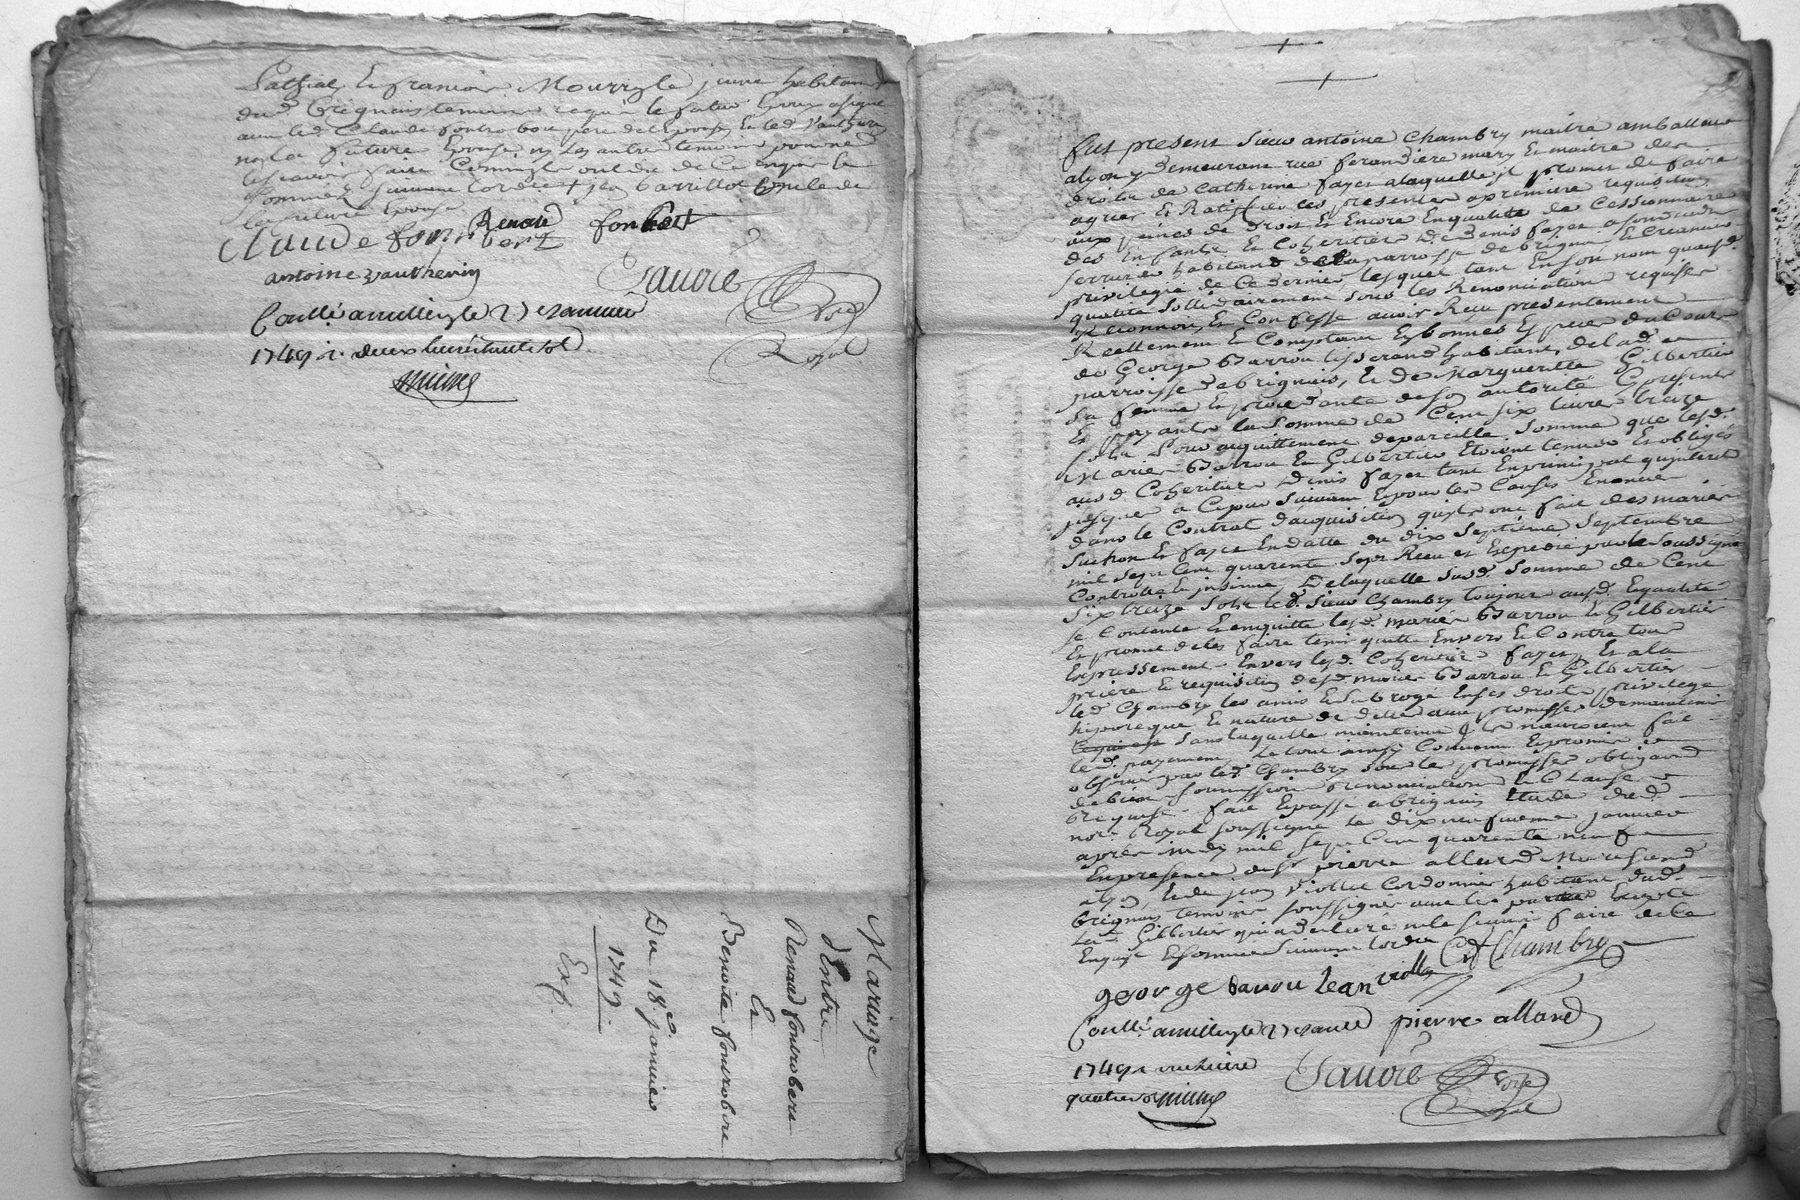 jeune habitans
dud. Brignais temoins requis le futur Epoux a signé
avec led. Claude fontrobert pere del'epouse, Et led. Vautherin
non la future Epouse ny les autres temoins pour ne
le scavoir faire
sommés suivant l'ordce + jean barrillot oncle de
la future Epouse
Claude fontrobert Renard fontrobert
antoine vautherin
Sauoie
Not.re
Royal
Conllé a millery le 27 janvier
1749 r. deux livres huit sols
Mariage
d'Entre
Renaud fontrobert
Et
Benoite fontrobert
Du 18e. janvier
1749.
Exp.
fut present sieur antoine Chambry maitre amballeur
alyon y demeurant rue ferandiere mary Et maitre des
droits de Catherine fayet alaquelle jl promet de faire
agreer Et Ratiffier les presentes a premiere requisition
aux peines de droit Et Encore En qualité de Cessionnaire
des Enfants Et Coheritiers de Denis fayet
serrurier habitant de la parroisse de brignais Et Creancier
privilegié de Ce dernier lequel tant En son nom qu'ausd.
qualités sollidairement sous les Renonciations requises
Reconnoit Et Confesse avoir Reçu presentement
Reellement Et Comptant En bonnes Especes du Cours
de George Barrou tisserand habitant de lad.
parroisse de brignais, Et de Marguerite Gilbertier
sa femme En procedante de son autorité Cy presents
Et payants la somme de Cent six livres treize
sols Pour acquittement de pareille somme que lesd.
Mariés Barrou Et Gilbertier Etoient tenus Et obligés
ausd. Coheritiers Denis fayet tant En principal qu'jnterets
jusques a Ce jour suivant Et pour les Causes Enoncées
dans le Contrat d'acquisition qu'ils ont fait des mariés
suchon Et fayet En datte du dix septieme septembre
mil sept cent quarente sept Reçu et Expedié par le soussigné
Controllé Et jnsinué, De laquelle susd. somme de Cent
six treize sols led. sieur Chambry toujours ausd. Equalités
se Contente Et En quitte lesd. mariés Barrou Et Gilbertier
Et promet de les faire tenir quitte Envers Et Contre tous
Expressement Envers lesd. Coheritiers fayet, Et a la
priere Et requisition desd. mariés Barrou Et Gilbertier
led. Chambry les a mis Et subrogé En ses droits privilege
hipoteque Et nature de dette avec promesse de maintenir
sans laquelle maintenue jls n'auroient fait
led. payement, Le tout ainsy Convenu Et promis
observer par led. Chambry sous les promesses obligaõns
de biens soumissions renonciations Et Clauses
requises. fait Et passé a brignais Etude dud.
not.re Royal soussigné le dix neufvieme janvier
apres midy mil sept Cent quarente neuf
En presence de sr. pierre allard Marchand
alyon, Et de jean Viollet Cordonnier habitant dud.
brignais temoins soussignés avec les parties Excepté
lad. Gilbertier qui a declaré ne le scavoir faire de Ce
Enquise Et sommée suivant l'ordce
Chambry
george barou Jean viollet
Conllé a millery le 27 janvr pierre allard
1749 r. une livre
quatre sols
Sauoie
Not.re
Royal